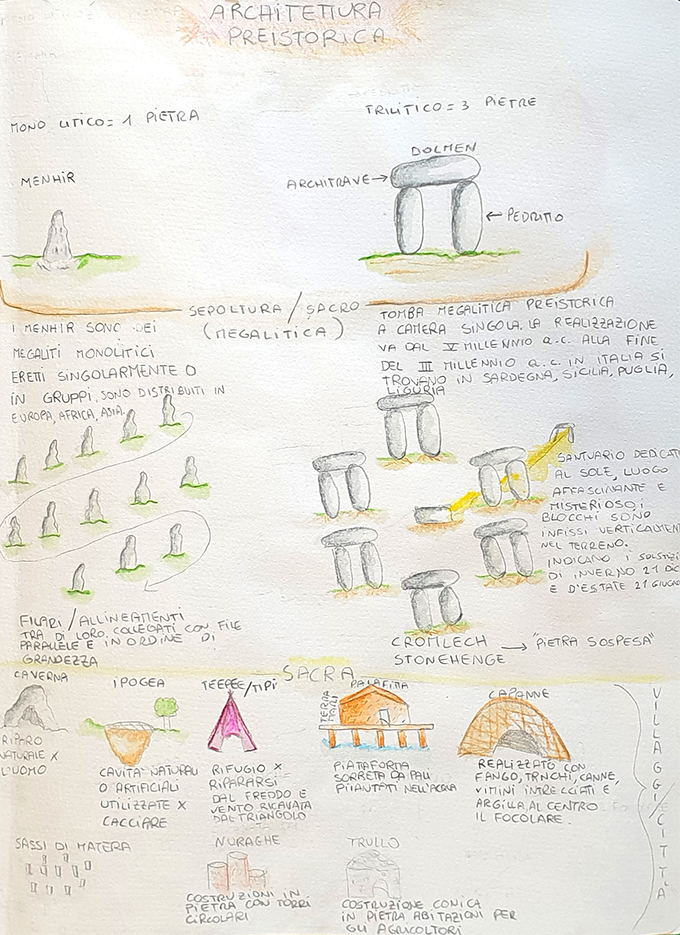 ARCHITETTURA
PREISTORICA
MONO LITICO = 1 PIETRA
TRILITICO = 3 PIETRE
MENHIR
DOLMEN
ARCHITRAVE →
← PEDRITTO
SEPOLTURA / SACRO
(MEGALITICA)
I MENHIR SONO DEI
MEGALITI MONOLITICI
ERETTI SINGOLARMENTE O
IN GRUPPI, SONO DISTRIBUITI IN
EUROPA, AFRICA, ASIA.
TOMBA MEGALITICA PREISTORICA
A CAMERA SINGOLA, LA REALIZZAZIONE
VA DAL V MILLENNIO a.C. ALLA FINE
DEL III MILLENNIO a.C. IN ITALIA SI
TROVANO IN SARDEGNA, SICILIA, PUGLIA,
LIGURIA
SANTUARIO DEDICAT
AL SOLE, LUOGO
AFFASCINANTE E
MISTERIOSO, I
BLOCCHI SONO
INFISSI VERTICALMENT
NEL TERRENO.
INDICANO I SOLSTIZI
DI INVERNO 21 DIC
E D'ESTATE 21 GIUGNO
FILARI / ALLINEAMENTI
TRA DI LORO, COLLEGATI CON FILE
PARALLELE E IN ORDINE DI
GRANDEZZA
CROMLECH → "PIETRA SOSPESA"
STONEHENGE
SACRA
CAVERNA
RIPARO
NATURALE X
L'UOMO
IPOGEA
CAVITA' NATURALI
O ARTIFICIALI
UTILIZZATE X
CACCIARE
TEEPEE/TIPI
RIFUGIO X
RIPARARSI
DAL FREDDO E
VENTO RICAVATA
DAL TRIANGOLO
TERRA
MARI
PALAFITTA
PIATTAFORMA
SORRETTA DA PALI
PIANTATI NELL'ACQUA
CAPANNE
REALIZZATO CON
FANGO, TRNCHI, CANNE,
VIMINI INTRECCIATI E
ARGILLA, AL CENTRO
IL FOCOLARE.
VILLAGGI/CITTÀ
SASSI DI MATERA
NURAGHE
COSTRUZIONI IN
PIETRA CON TORRI
CIRCOLARI
TRULLO
COSTRUZIONE CONICA
IN PIETRA ABITAZIONI PER
GLI AGRICOLTORI